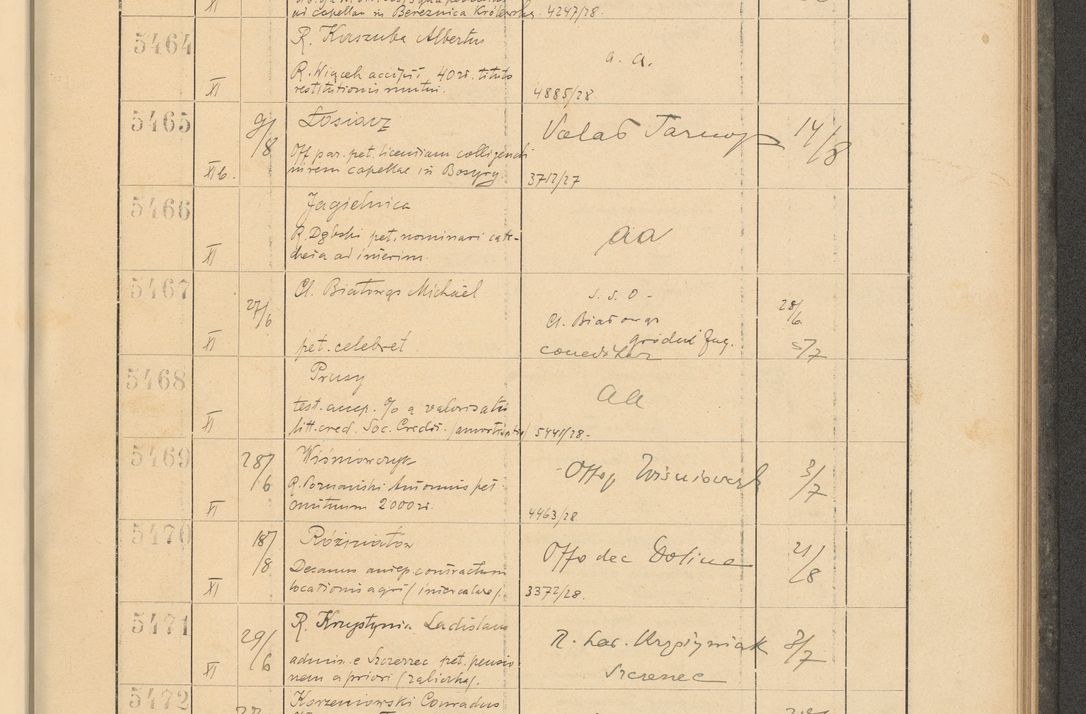 XI
ni capellae in Bereznica Królewska. 4247/28.
5464
R. Kaszuba Albertus
a. a.
XI
R. Wiącek accipit 40 zł. titulo
restitutionis mutui.
4885/28.
5465
9/8
Łosiacz
14/8
XI b.
Off. par. pet. licentiam colligendi
in rem capellae in Bosyry.
3712/27
5466
Jagielnica
aa
XI
R. Dębski pet. nominari cate-
cheta ad interim.
5467
27/6
Cl. Białowąs Michael
s. s. o -
28/6
Cl. Białowąs
XI
pet. celebret
5/7
5468
Prusy
aa
XI
test. accep. % a valorisatis
litt. cred. Soc. Credit. 5441/28.
5469
28/6
Wiśniowczyk
Offo Wiśniowczyk
3/7
XI
R. Poznański Antonius pet.
mutuum 2000 zł.
4463/28
5470
18/8
Rożniatów
Offo dec Dolina
21/8
XI
Decanus accep. contractum
locationis agri (intercalare).
3372/28.
5471
29/6
R. Krzyżyniak Ladislaus
R. Lad. Krzyżyniak
3/7
XI
admin. e Szczerzec pet. pensio
nem a priori (zaliczka).
Szczerzec
5472
Korzeniowski Conradus